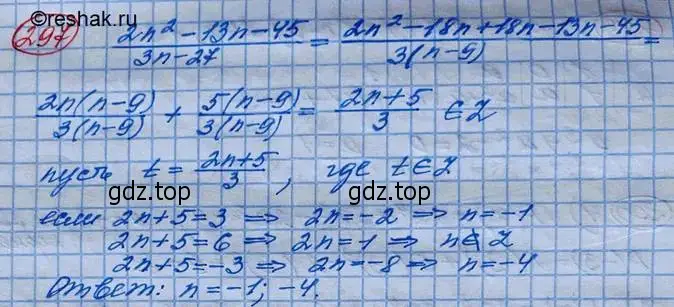 Решак.ру
297 (2n² - 13n - 45)/(3n - 27) = (2n² - 18n + 18n - 13n - 45)/(3(n - 9)) =
2n(n-9)/3(n-9) + 5(n-9)/3(n-9) = (2n+5)/3 ∈ Z
пусть t = (2n+5)/3, где t ∈ Z
gdz.top gdz.top
если 2n+5=3 ⇒ 2n=-2 ⇒ n=-1
2n+5=6 ⇒ 2n=1 ⇒ n∉Z
2n+5=-3 ⇒ 2n=-8 ⇒ n=-4
Ответ: n=-1; -4.